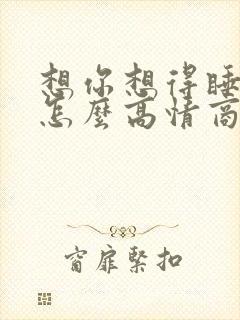 想你想得睡
怎麼高情商
窗扉緊扣